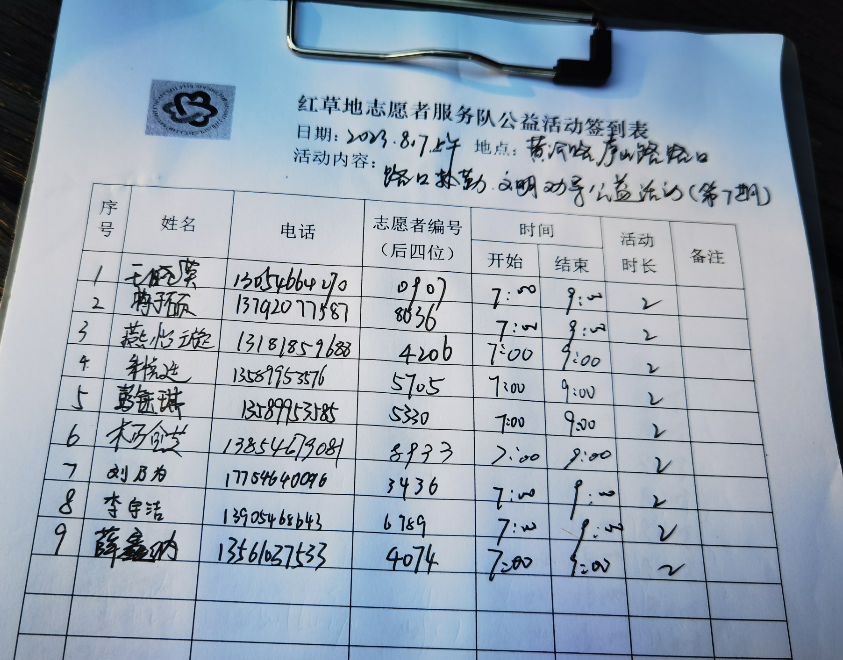 红草地志愿者服务队公益活动签到表
日期：2023.8.7上午 地点：黄河路庐山路路口
活动内容：路口执勤.文明劝导公益活动(第7期)
序号 姓名 电话 志愿者编号（后四位） 时间 开始 结束 活动时长 备注
1 王晓英 13054664270 0907 7:00 9:00 2
2 13792077587 8036 7:00 9:00 2
3 燕怡璇 13181859688 4206 7:00 9:00 2
4 13589953576 5705 7:00 9:00 2
5 13589953585 5330 7:00 9:00 2
6 13854673081 8933 7:00 9:00 2
7 刘乃为 17754640096 3436 7:00 9:00 2
8 李宇洁 13905468643 6789 7:00 9:00 2
9 薛鑫纳 13561037533 4074 7:00 9:00 2